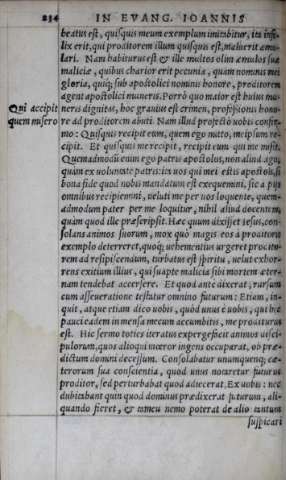 234 IN EVANG. IOANNIS
beatus est, quisquis meum exemplum imitabitur, ita infe-
lix erit, qui proditorem illum quisquis est, maluerit æmu-
lari. Nam habiturus est & ille multos olim æmulos suæ
maliciæ, quibus charior erit pecunia, quàm nominis mei
gloria, quiq; sub apostolici nominis honore, proditorem
agent apostolici muneris. Porrò quo maior est huius mu-
Qui accipit neris dignitas, hoc grauius est crimen, professionis hono-
quem misero re ad proditorem abuti. Nam illud profectò uobis confir-
mo: Quisquis recipit eum, quem ego mitto, meipsum re-
cipit. Et quisquis me recipit, recipit eum qui me misit.
Quemadmodũ enim ego patris apostolus, non aliud ago,
quàm ex uoluntate patris: ita uos qui mei estis apostoli, si
bona fide quod nobis mandatum est exequemini, sic à pijs
omnibus recipiemini, ueluti me per uos loquente, quem-
admodum pater per me loquitur, nihil aliud docentem,
quàm quod ille præscripsit. Hæc quum dixisset Iesus, con-
solans animos suorum, mox quò magis eos à proditoris
exemplo deterreret, quoq; uehementius urgeret prodito-
rem ad resipiscendum, turbatus est spiritu, uelut exhor-
rens exitium illius, qui suapte malicia sibi mortem æter-
nam tendebat accersere. Et quod antè dixerat, rursum
cum asseueratione testatur omnino futurum: Etiam, in-
quit, atque etiam dico uobis, quòd unus è uobis, qui hic
pauci eadem in mensa mecum accumbitis, me proditurus
est. Hic sermo toties iteratus expergefecit animos disci-
pulorum, quos alioqui mœror ingens occuparat, ob præ-
dictum domini decessum. Consolabatur unumquenq; cæ-
terorum sua conscientia, quod unus notaretur futurus
proditor, sed perturbabat quod adiecerat, Ex uobis: nec
dubitabant quin quod dominus prædixerat futurum, ali-
quando fieret, & tamen nemo poterat de alio tantum
suspicari